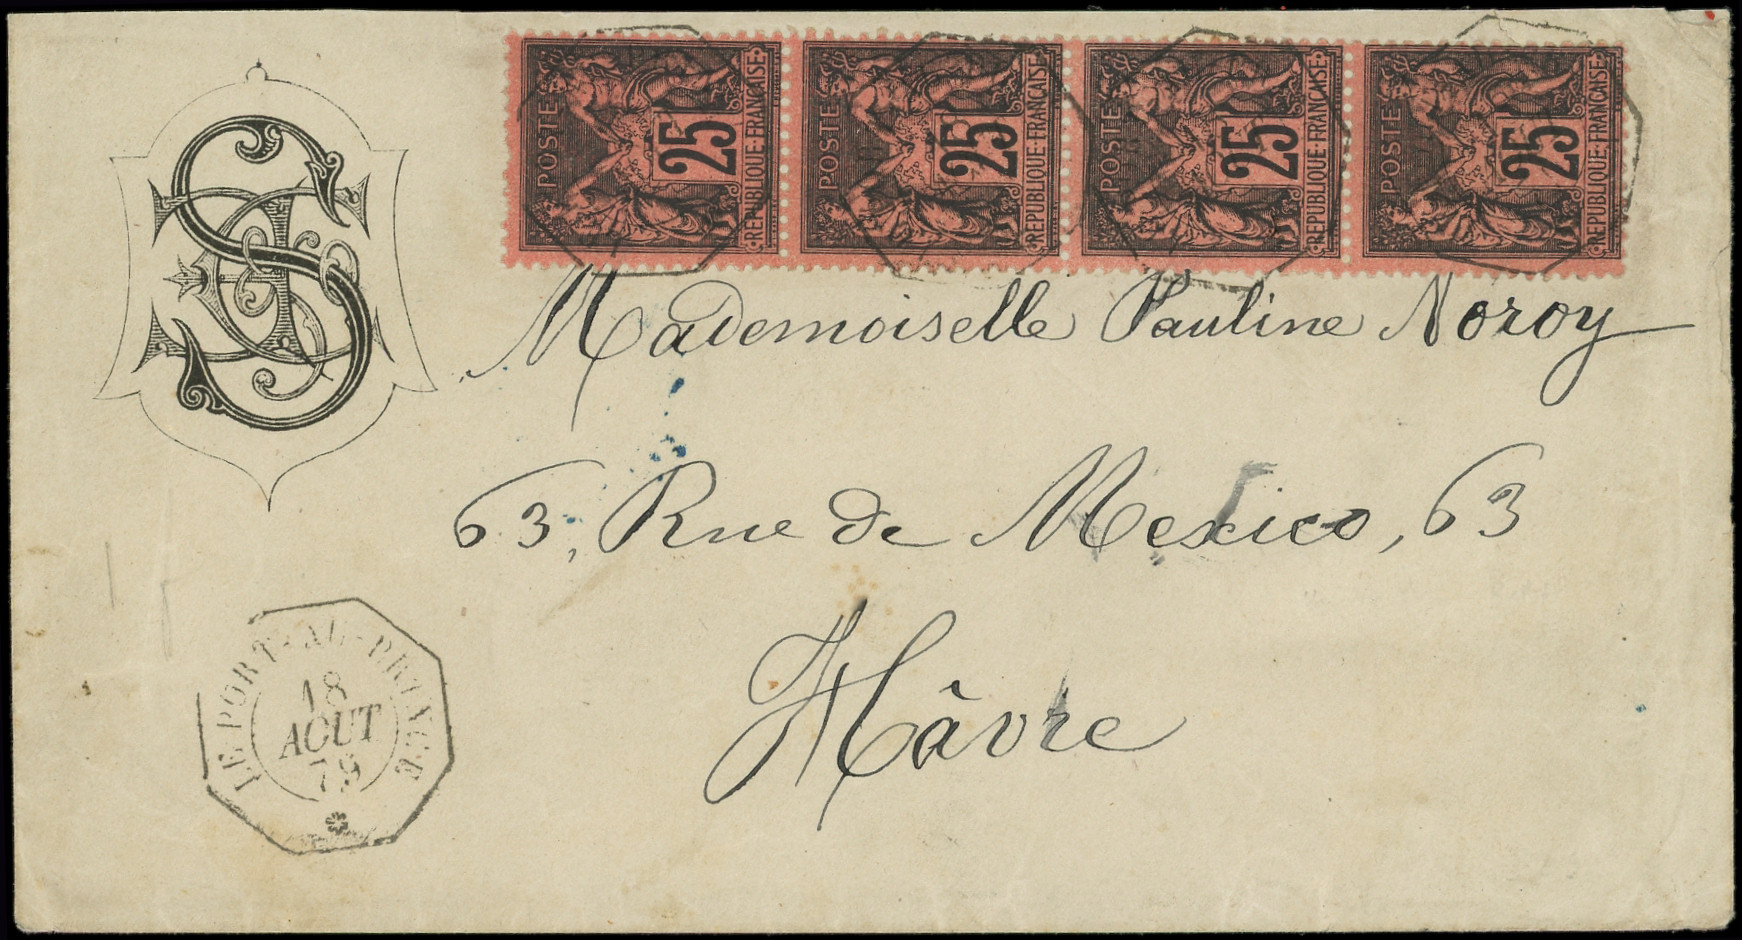 POSTE 25 REPUBLIQUE FRANCAISE
POSTE 25 REPUBLIQUE FRANCAISE
POSTE 25 REPUBLIQUE FRANCAISE
POSTE 25 REPUBLIQUE FRANCAISE
Mademoiselle Pauline Noroy
63, Rue de Mexico, 63
Hâvre
LE PORT-AU-PRINCE
18
AOUT
79